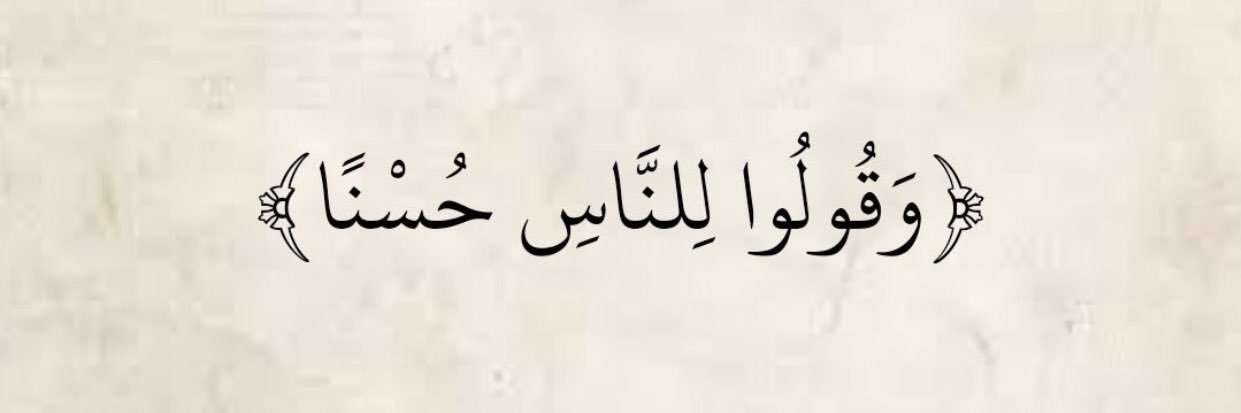 ﴿وَقُولُوا لِلنَّاسِ حُسْنًا﴾